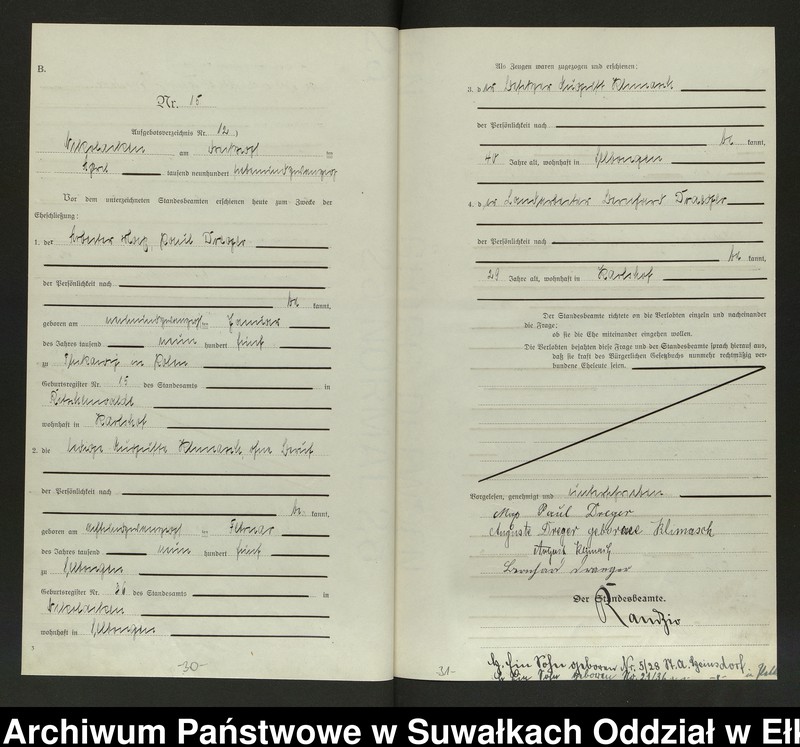 B.
Nr. 15
Aufgebotsverzeichnis Nr. 12.)
am
April tausend neunhundert siebenundzwanzig
Vor dem unterzeichneten Standesbeamten erschienen heute zum Zwecke der
Eheschließung:
1. der Arbeiter Max Paul Draeger
der Persönlichkeit nach
be kannt,
geboren am ten Januar
des Jahres tausend neun hundert fünf
zu in Polen
Geburtsregister Nr. 15 des Standesamts in
wohnhaft in Karlshof
2. die ledige Auguste Klimasch, ohne Beruf
der Persönlichkeit nach
be kannt,
geboren am ten Februar
des Jahres tausend neun hundert fünf
zu
Geburtsregister Nr. 36 des Standesamts in
wohnhaft in
-30-
Als Zeugen waren zugezogen und erschienen:
3. der Besitzer August Klimasch
der Persönlichkeit nach
be kannt,
48 Jahre alt, wohnhaft in
4. der Landarbeiter Bernhard Draeger
der Persönlichkeit nach
be kannt,
29 Jahre alt, wohnhaft in Karlshof
Der Standesbeamte richtete an die Verlobten einzeln und nacheinander
die Frage:
ob sie die Ehe miteinander eingehen wollen.
Die Verlobten bejahten diese Frage und der Standesbeamte sprach hierauf aus,
daß sie kraft des Bürgerlichen Gesetzbuchs nunmehr rechtmäßig ver-
bundene Eheleute seien.
Vorgelesen, genehmigt und unterschrieben
Max Paul Dreger
Auguste Dreger geborene Klimasch
August Klimasch
Bernhard Draeger
Der Standesbeamte.
Randzio
31-
Ein Sohn geboren Nr. 5/28 St.A. Heinsdorf
Ein Sohn geboren No. 21/36
Archiwum Państwowe w Suwałkach Oddział w Ełk